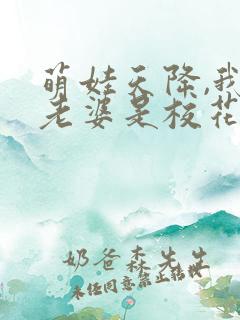 萌娃天降,我
老婆是校花
奶爸森先生
未经同意禁止转载